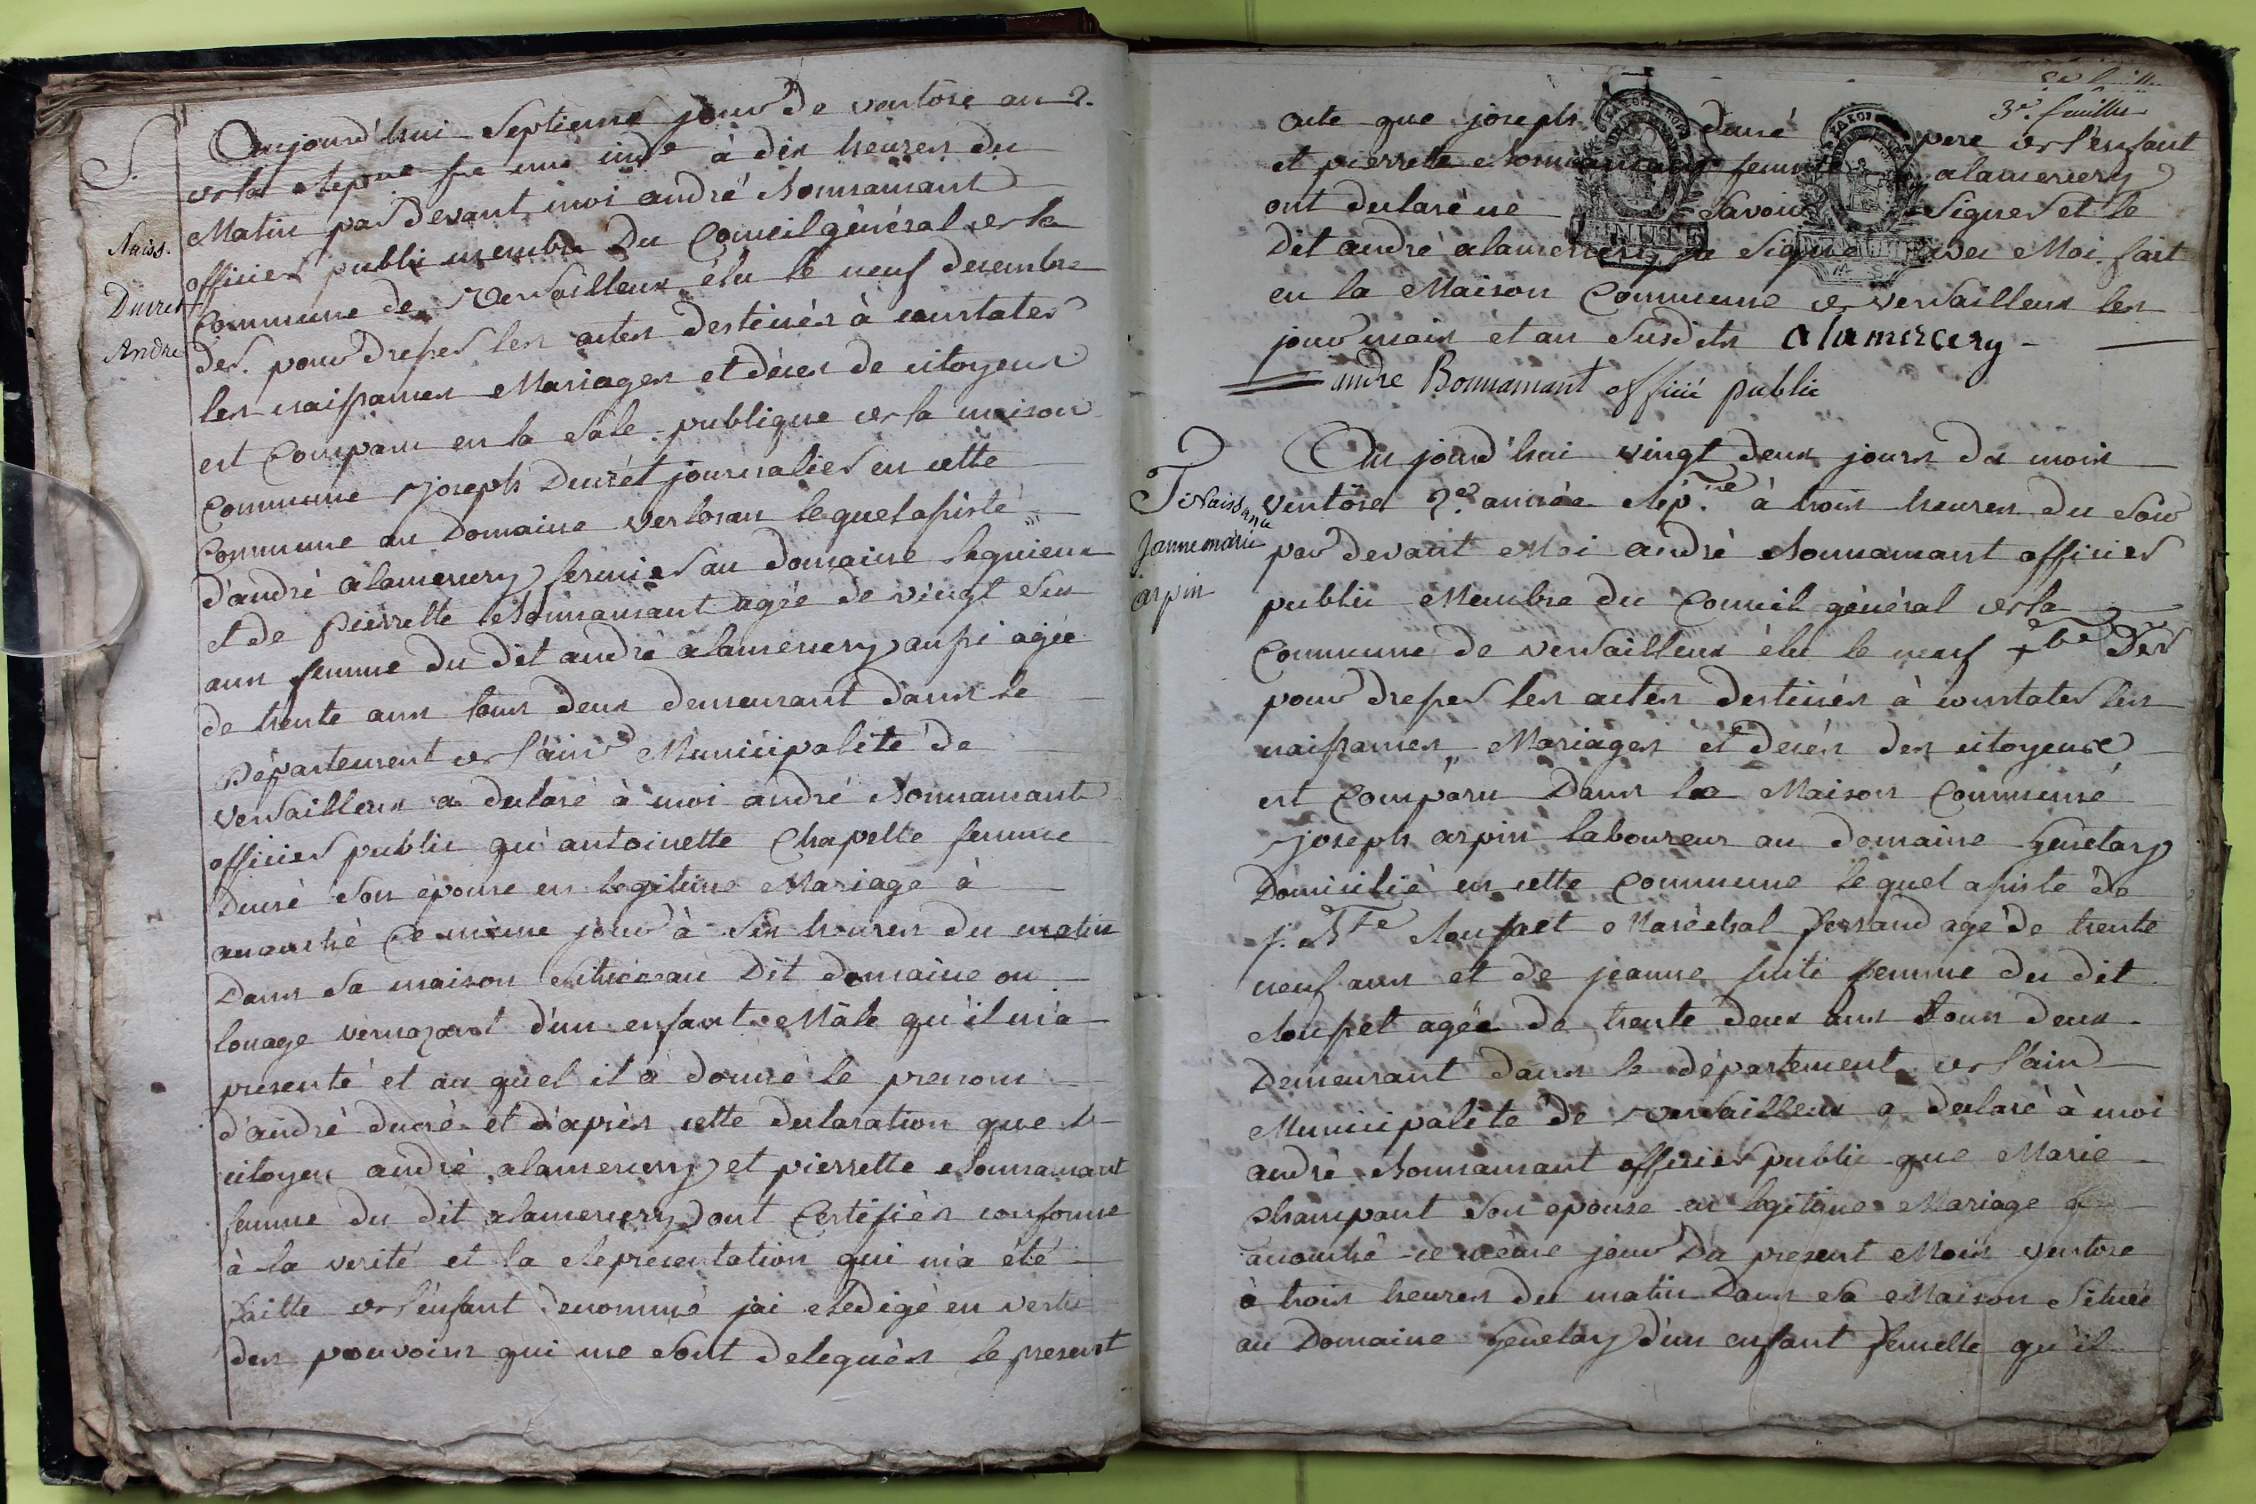 Aujourd'hui Septieme jour de ventose an 2.
de la Repque fse une inde à dix heures du
Matin par devant moi andré Bonnamant
officier public membre Du Conseil général de la
Commune de Versailleux élu le neuf decembre
der. pour dresser les actes destinés à constater
les naissances Mariages et décès de citoyens
est Comparu en la Sale publique de la maison
Commune joseph Ducrèt journalier en cette
Commune au Domaine lequel assisté
d'andré alamercery fermier au domaine
et de pierrette Bonnamant agée de vingt Six
ans femme du dit andré alamercery aussi agée
de trente ans tous deux demeurant dans le
Département de l'ain Municipalité de
Versailleux a declaré à moi andré Bonnamant
officier public qu'antoinette Chapelle femme
Ducré Son épouse en legitime Mariage à
accouché Ce même jour à Six heures du matin
Dans Sa maison Située au Dit domaine ou
louage d'un enfant Mâle qu'il m'a
presenté et au quel il à donné le prenom
d'andré ducré et d'après cette declaration que le
citoyen andré alamercery et pierrette Bonnamant
femme du dit alamercery ont Certifiés conforme
à la verité et la Representation qui m'a été
faitte de l'enfant denommé jai Redigé en vertu
des pouvoirs qui me Sont delegués le present
S.
Naiss.
Ducret
André
3e. feuillet
acte que joseph ducré pere de l'enfant
et pierrette Bonnamant femme alamercery
ont declaré ne Savoir Signer et le
Dit andré alamercery a Signé avec Moi fait
en la Maison Commune de versailleux les
jour mois et an Susdits alamercery
andre Bonnamant officié public
Naissance
Jannemarie
arpin
Au jourd'hui vingt deux jours du mois
Ventose 2e. année Rép.ne à trois heures du Soir
par devant Moi andré Bonnamant officier
public Membre du Conseil général de la
Commune de versailleux élu le neuf Xbre Der
pour dresser les actes destinés à constater les
naissances, Mariages et decès des citoyens
est Comparu Dans la Maison Commune
joseph arpin laboureur au domaine Genetay
Domicilié en cette Commune lequel assisté de
j. Bte Maréchal ferrand agé de trente
neuf ans et de jeanne femme du dit
agée de trente deux ans tous deux
Demeurant dans le département de l'ain
Municipalité de versailleux a declaré à moi
andré Bonnamant officier public que Marie
Champant Son epouse en legitime Mariage a
accouché ce même jour Du present Mois ventose
à trois heures du matin Dans Sa Maison Située
au Domaine Genetay d'un enfant femelle qu'il